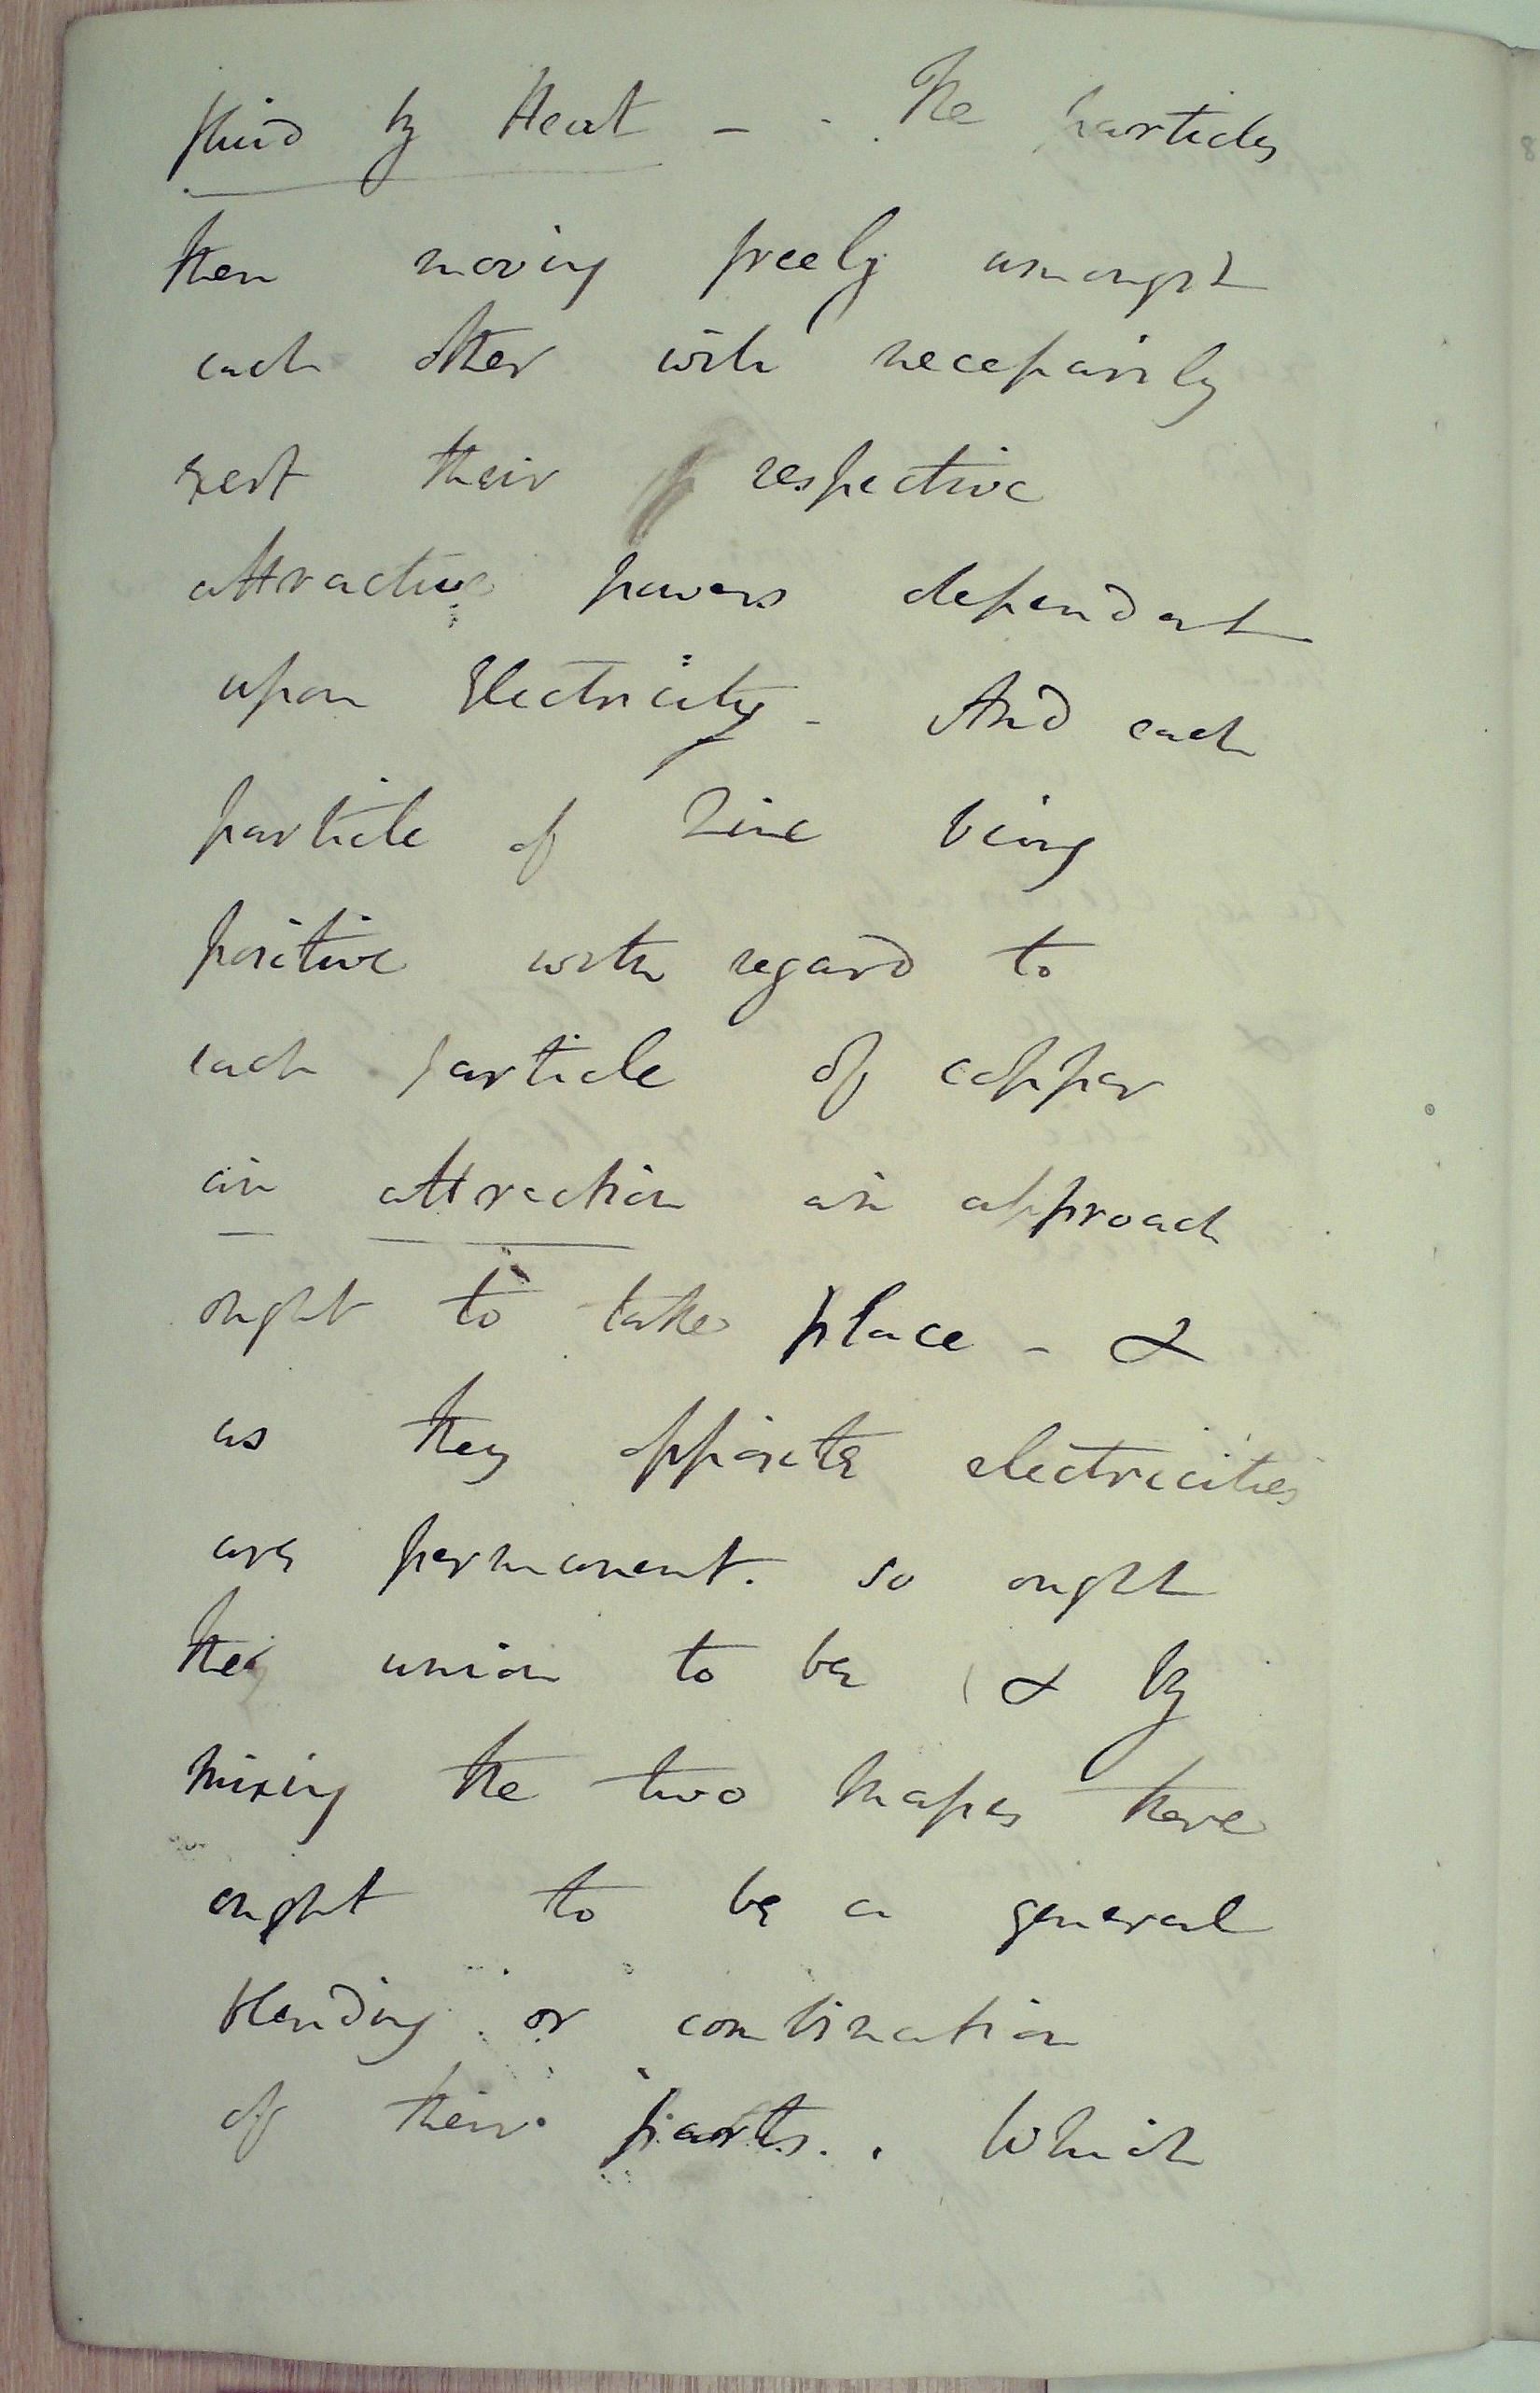 fluid by Heat – - The particles
then moving freely amongst
each other will necessarily
exert their respective
attractive powers dependent
upon Electricity - And each
particle of Zinc being
positive with regard to
each particle of copper
an attraction an approach
ought to take place - &
as they opposite electricities
are permanent. so ought
their union to be & by
mixing the two masses there
ought to be a general
blending or combination
of their parts. . Which